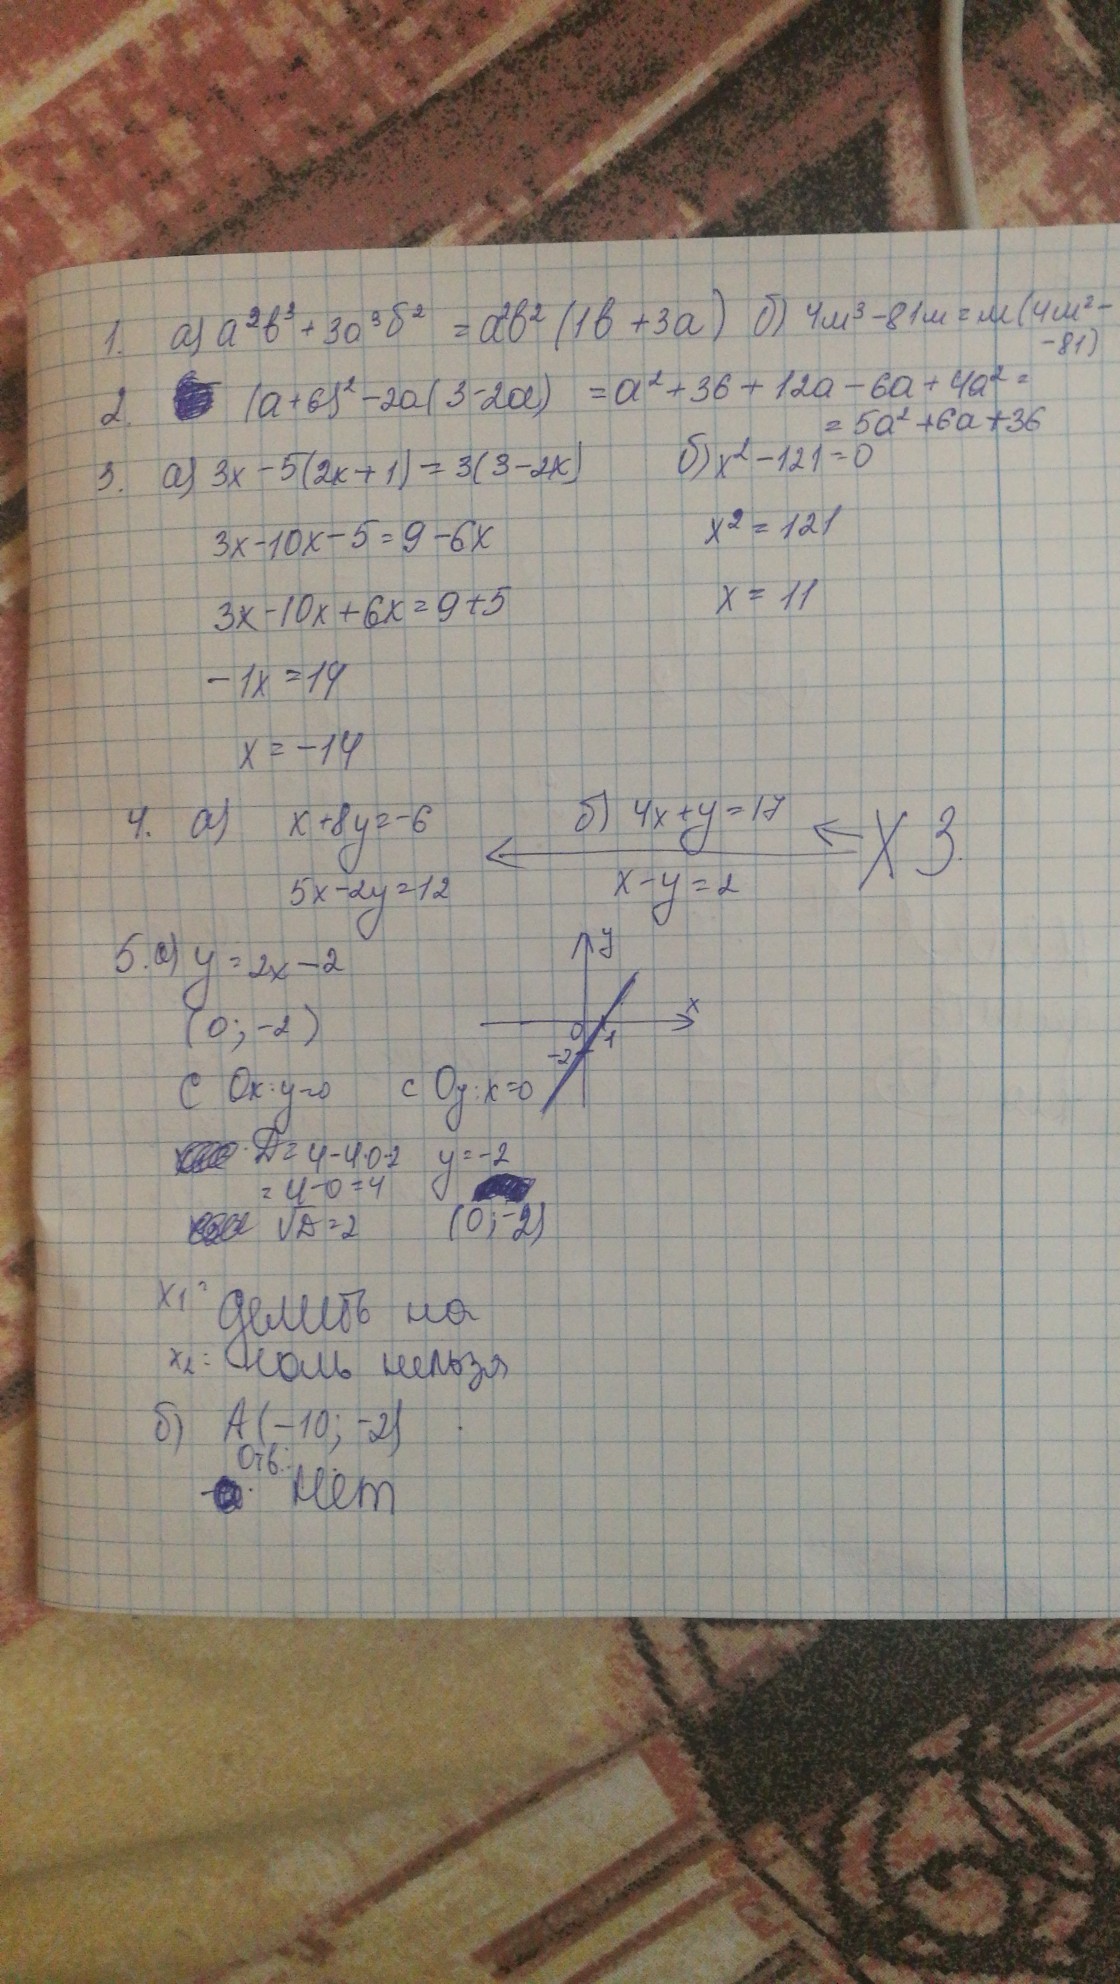 1. а) a²b³ + 3a³б² = a²b² (1b + 3a) б) 4м³ - 81м = м(4м² -
-81)
2. (a+6)² - 2a(3-2a) = a² + 36 + 12a - 6a + 4a² =
= 5a² + 6a + 36
3. а) 3x - 5(2x+1) = 3(3-2x) б) x² - 121 = 0
3x - 10x - 5 = 9 - 6x x² = 121
3x - 10x + 6x = 9 + 5 x = 11
-1x = 14
x = -14
4. а) x + 8y = -6 б) 4x + y = 17 ХЗ
5x - 2y = 12 x - y = 2
5. а) y = 2x - 2 y
x
(0; -2) 0 1
-2
С Ox: y=0 с Oy: x=0
D = 4 - 4·0·2 y = -2
= 4 - 0 = 4
√D = 2 (0; -2)
x₁ = делить на
x₂ = ноль нельзя
б) A(-10; -2)
Отв.:
Нет